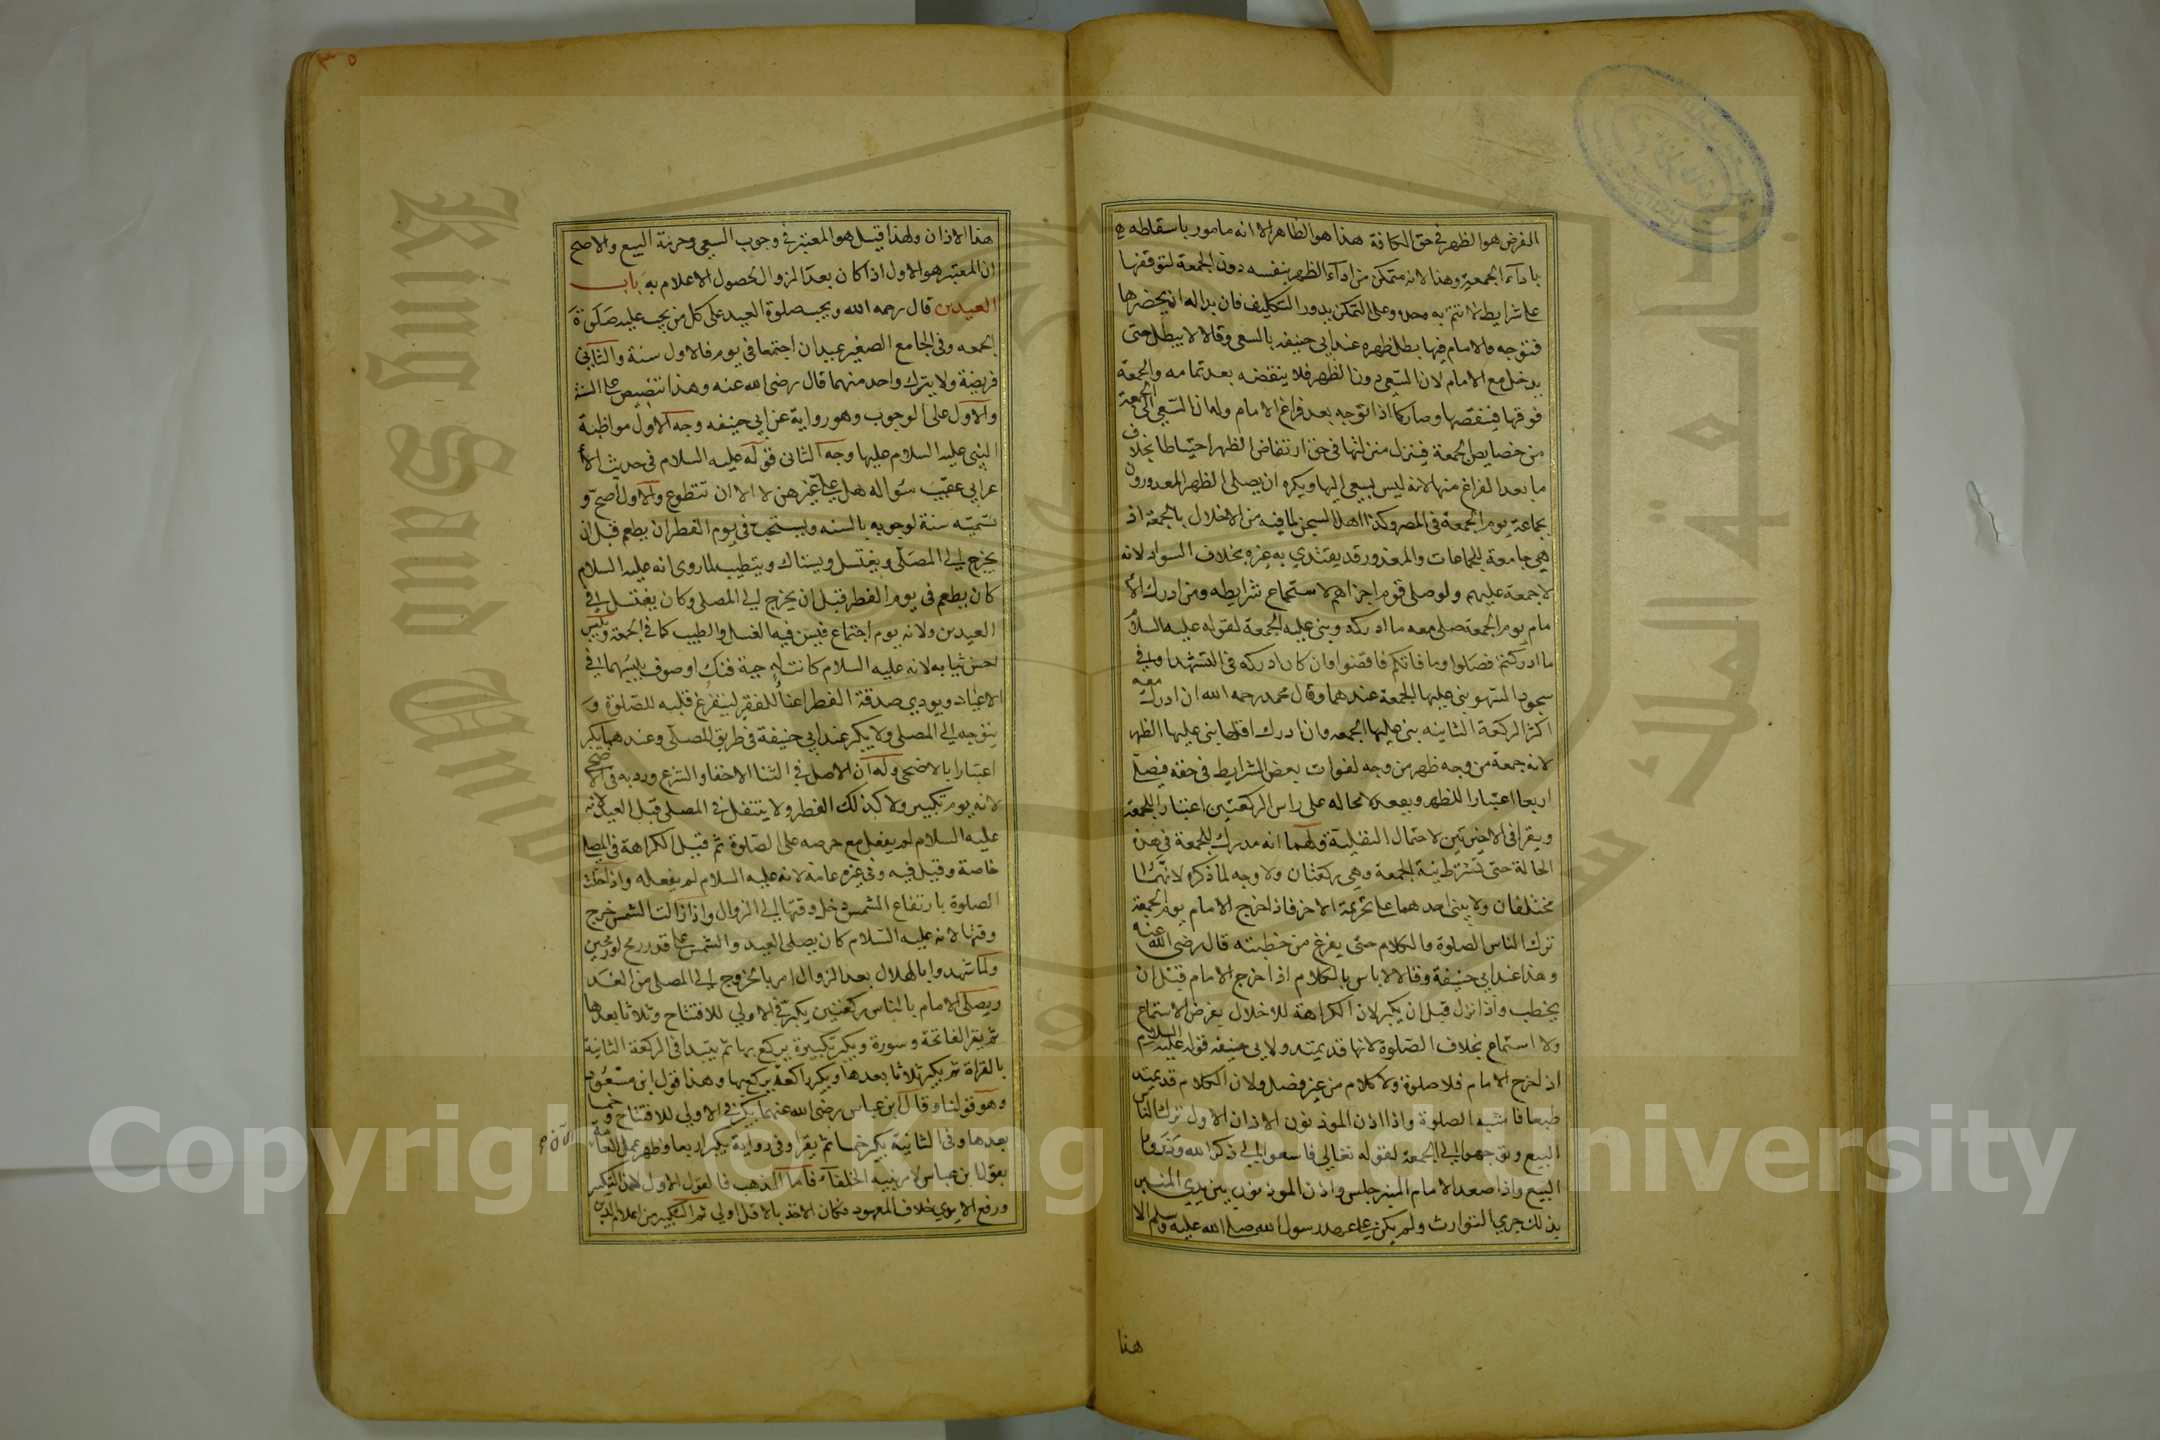 الفرض هو الظهر في حق الكافة هذا هو الظاهر الا انه مامور باسقاطه
باداء الجمعة وهذا لانه متمكن من اداء الظهر بنفسه دون الجمعة لتوقفها
على شرايط لا تتم به وحده وعلى التمكن يدور التكليف فان بدا له ان يحضرها
فتوجه والامام فيها بطل ظهره عند ابي حنيفه بالسعي وقالا لا يبطل حتى
يدخل مع الامام لان السعي دون الظهر فلا ينقضه بعد تمامه والجمعة
فوقها فينقضها وصار كما اذا توجه بعد فراغ الامام وله ان السعي الى الجمعة
من خصايص الجمعة فينزل منزلتها في حق ارتفاض الظهر احتياطا بخلاف
ما بعد الفراغ منها لانه ليس بسعي اليها ويكره ان يصلي الظهر المعذورون
بجماعة يوم الجمعة في المصر وكذا اهل السجن لما فيه من الاخلال بالجمعة اذ
هي جامعة للجماعات والمعذور قد يقتدي به غيره بخلاف السواد لانه
لا جمعة عليهم ولو صلى قوم اجزاهم لاستجماع شرايطه ومن ادرك الا
مام يوم الجمعة صلى معه ما ادركه وبنى عليه الجمعة لقوله عليه السلام
ما ادركتم فصلوا وما فاتكم فاقضوا وان كان ادركه في التشهد او في
سجود السهو بنى عليها الجمعة عندهما وقال محمد رحمه الله ان ادرك معه
اكثر الركعة الثانيه بنى عليها الجمعه وان ادرك اقلها بنى عليها الظهر
لانه جمعة من وجه ظهر من وجه لفوات بعض الشرايط في حقه فيصلي
اربعا اعتبارا للظهر ويقعد لا محاله على راس الركعتين اعتبارا للجمعة
ويقرا في الاخريين لاحتمال النفلية ولهما انه مدرك للجمعة في هذه
الحالة حتى تشترط نية الجمعة وهي ركعتان ولا وجه لما ذكره لانهما
مختلفان ولا يبنى احدهما على تحريمة الاخر فاذا خرج الامام يوم الجمعة
ترك الناس الصلوة والكلام حتى يفرغ من خطبته قال رضي الله عنه
وهذا عند ابي حنيفة وقالا لا باس بالكلام اذا خرج الامام قبل ان
يخطب واذا نزل قبل ان يكبر لان الكراهة للاخلال بفرض الاستماع
ولا استماع بخلاف الصلوة لانها قد يمتد ولابي حنيفه قوله عليه السلام
اذا خرج الامام فلا صلوة ولا كلام من غير فصل ولان الكلام قد يمتد
طبعا فاشبه الصلوة واذا اذن الموذنون الاذان الاول ترك الناس
البيع وتوجهوا الى الجمعة لقوله تعالى فاسعوا الى ذكر الله وذروا
البيع واذا صعد الامام المنبر جلس واذن الموذنون بين يدي المنبر
بذلك جرى التوارث ولم يكن على عهد رسول الله صلى الله عليه وسلم الا
هذا
هذا الاذان ولهذا قيل هو المعتبر في وجوب السعي وحرمة البيع والاصح
ان المعتبر هو الاول اذا كان بعد الزوال لحصول الاعلام به باب
العيدين قال رحمه الله ويجب صلوة العيد على كل من يجب عليه صلوة
الجمعه وفي الجامع الصغير عيدان اجتمعا في يوم فالاول سنة والثاني
فريضة ولا يترك واحد منهما قال رضي الله عنه وهذا تنصيص على السنة
والاول على الوجوب وهو رواية عن ابي حنيفه وجه الاول مواظبة
النبي عليه السلام عليها وجه الثاني قوله عليه السلام في حديث الا
عرابي عقيب سؤاله هل علي غيرهن لا الا ان تتطوع والاول اصح و
تسميته سنة لوجوبه بالسنه ويستحب في يوم الفطر ان يطعم قبل ان
يخرج الى المصلى ويغتسل ويستاك ويتطيب لما روي انه عليه السلام
كان يطعم في يوم الفطر قبل ان يخرج الى المصلى وكان يغتسل في
العيدين ولانه يوم اجتماع فيسن فيه الغسل والطيب كما في الجمعة ويلبس
احسن ثيابه لانه عليه السلام كانت له جبة فنك او صوف يلبسهما في
الاعياد ويودي صدقة الفطر اغناء للفقير ليتفرغ قلبه للصلوة و
يتوجه الى المصلى ولا يكبر عند ابي حنيفة في طريق المصلى وعندهما يكبر
اعتبارا بالاضحى وله ان الاصل في الثنا الاخفا والشرع ورد به في الاضحى
لانه يوم تكبير ولا كذلك الفطر ولا يتنفل في المصلى قبل العيد لانه
عليه السلام لم يفعل مع حرصه على الصلوة ثم قيل الكراهة في المصلى
خاصة وقيل فيه وفي غيره عامة لانه عليه السلام لم يفعله واذا حلت
الصلوة بارتفاع الشمس دخل وقتها الى الزوال واذا زالت الشمس خرج
وقتها لانه عليه السلام كان يصلي العيد والشمس على قدر رمح او رمحين
ولما شهدوا بالهلال بعد الزوال امر بالخروج الى المصلى من الغد
ويصلي الامام بالناس ركعتين يكبر في الاولى للافتتاح وثلاثا بعدها
ثم يقرا الفاتحة وسورة ويكبر تكبيرة يركع بها ثم يبتدا في الركعة الثانية
بالقراة ثم يكبر ثلاثا بعدها ويكبر رابعة يركع بها وهذا قول ابن مسعود
وهو قولنا وقال ابن عباس رضي الله عنهما يكبر في الاولى للافتتاح وخمسا
بعدها وفي الثانية يكبر خمسا ثم يقرا وفي رواية يكبر اربعا وظهر عمل العامة
بقول ابن عباس لامر بنيه الخلفاء فاما المذهب فالقول الاول لان التكبير
ورفع الايدي خلاف المعهود فكان الاخذ بالاقل اولى ثم التكبير من اعلام الدين
Copyright © King Saud University
King Saud University